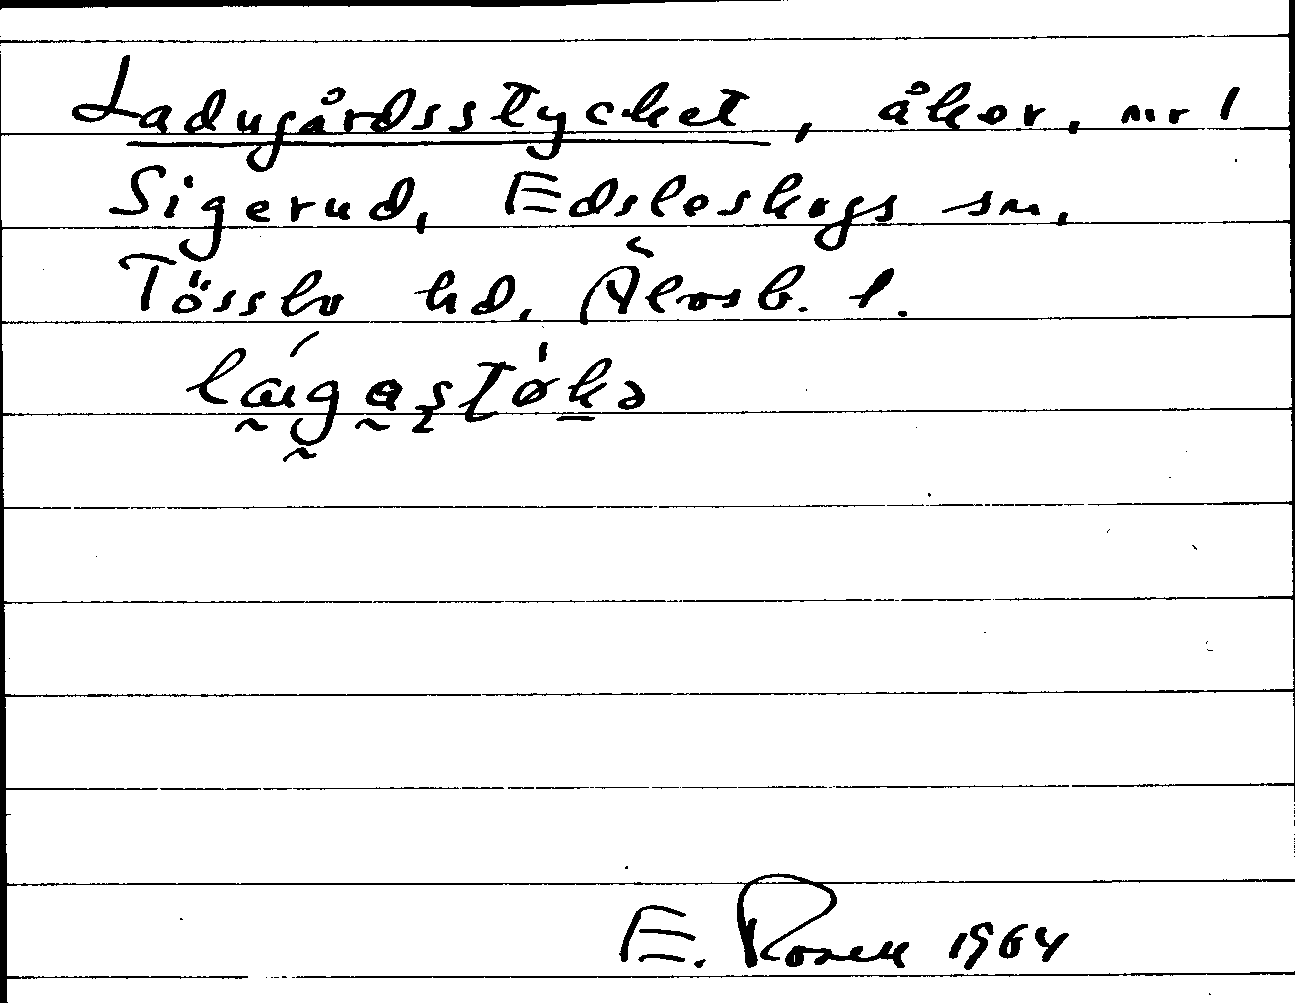 Ladugårdsstycket, åker, nr 1
Sigerud, Edsleskogs sn,
Tössbo hd, Älvsb. l.
E. Rosell 1964